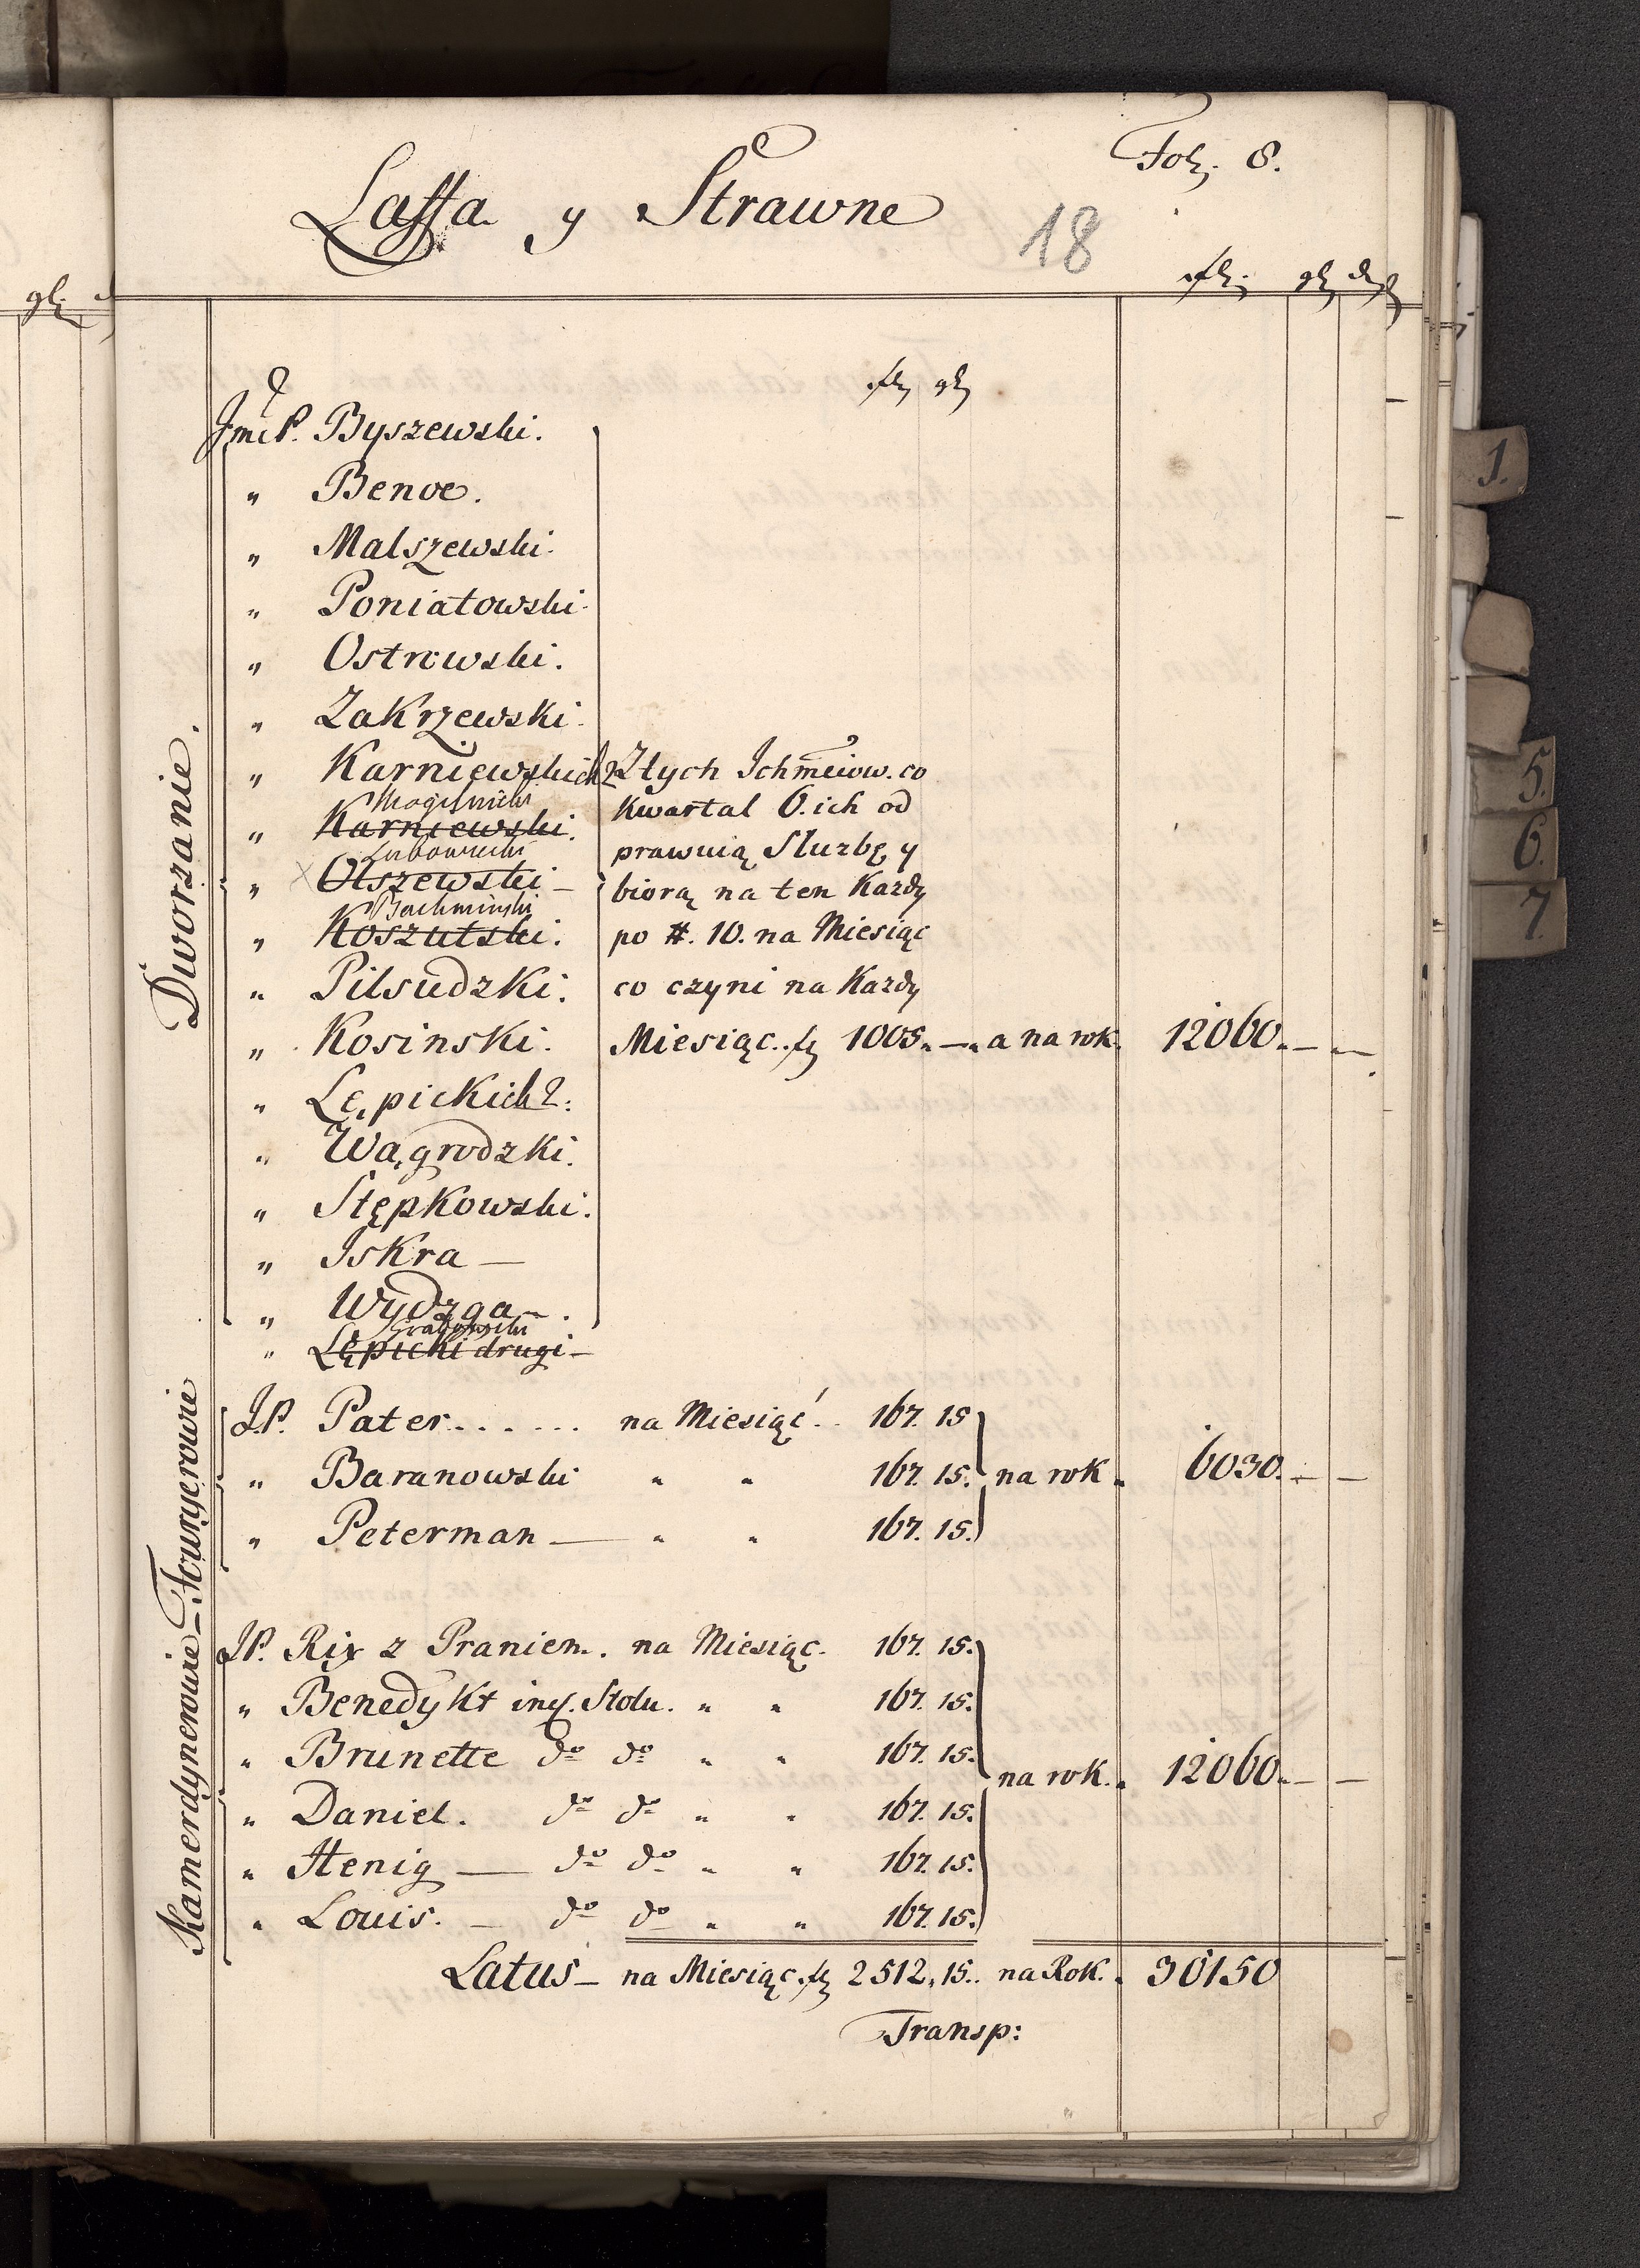 Fol: 8.
Laffa y Strawne
18
fl: gl: d:
gl:
fl: gl:
Dworzanie.
JmćP. Byszewski.
" Benoe.
" Malszewski.
" Poniatowski.
" Ostrowski.
" Zakrzewski.
" Karniewskich 2
Mogilnicki
" Karniewski.
Lubowiecki
" Olszewski —
Bachminski
" Koszutski.
" Pilsudzki.
" Kosinski.
" Lępickich 2.
" Wągrodzki.
" Stępkowski.
" Iskra —
" Wydzga —.
Grabowski
" Lępicki drugi —
Ztych Ichmciow. co
Kwartal 6. ich od
prawuią Sluzbę y
biorą na ten Kazdy
po #. 10. na Miesiąc
co czyni na Kazdy
Miesiąc.. fl 1005. — " a na rok. 12060. — —
Kamerdynerowie — Fouryerowie
J.P. Pater...... na Miesiąć.. 167. 15
" Baranowski " " 167. 15. na rok " 6030. — —
" Peterman — " " 167. 15.
JP. Rix z Praniem. na Miesiąc. 167. 15.
" Benedykt incl. Stolu. " " 167. 15.
" Brunette do do " " 167. 15.
na rok. " 12060. — —
" Daniel. do do " " 167. 15.
" Henig — do do " " 167. 15.
" Louis. — do do " " 167. 15.
Latus — na Miesiąc. fl 2512. 15.. na Rok. " 30150
Transp:
1.
5.
6.
7.